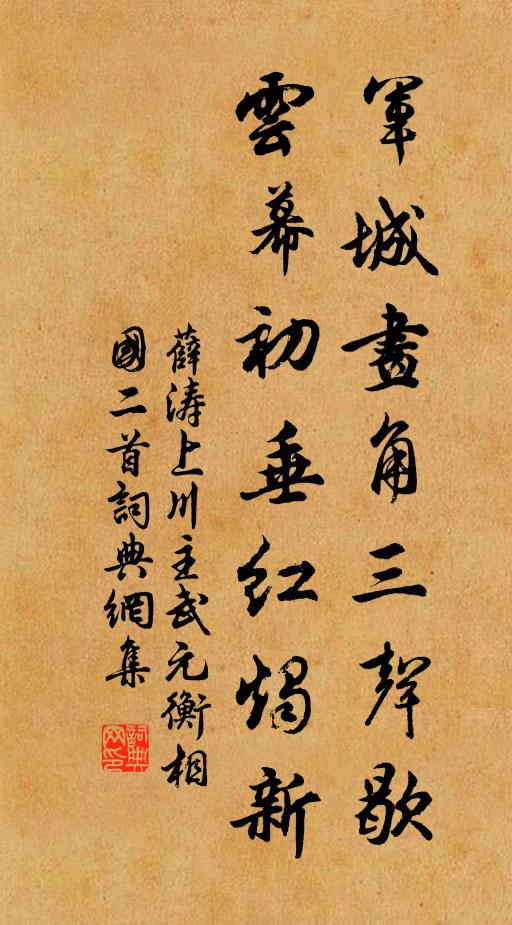 軍城畫角三聲歇
雲幕初垂紅燭新
薛濤上川主武元衡相
國二首詞典網集
詞典
网印